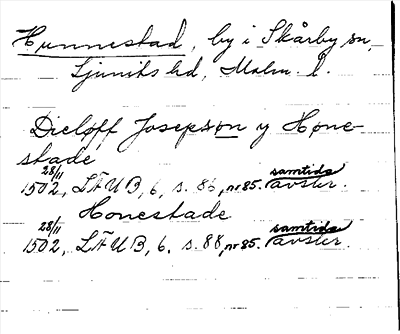 Hunnestad, by i Skårby sn,
Ljunits hd, Malm. l.
Dieloff Josepson y Hone-
stade
28/11 samtida
1502, LÄUB, 6, s. 86, nr 85. avskr.
Honestade
28/11 samtida
1502, LÄUB, 6, s. 88, nr 85. avskr.